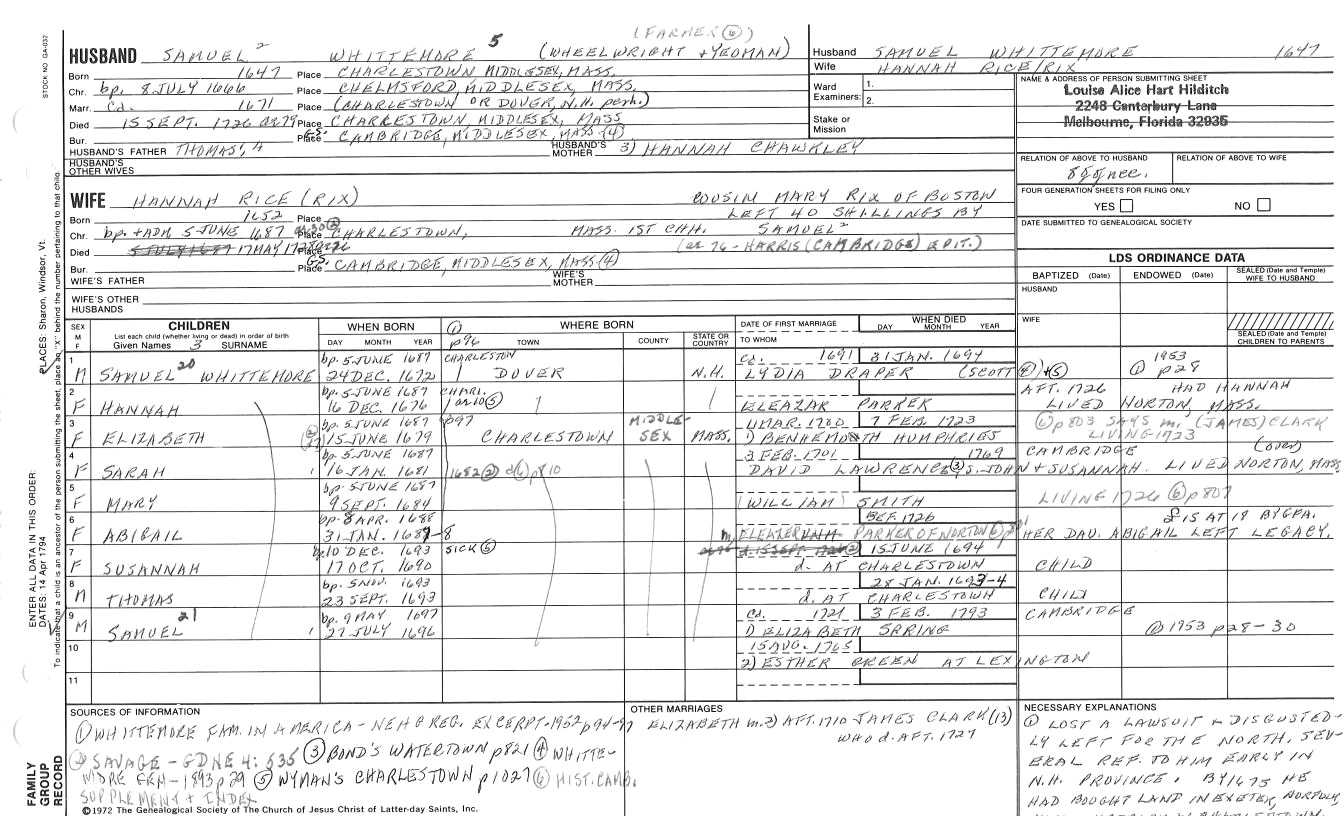 STOCK NO GA-037
(FARMER ⑥)
HUSBAND SAMUEL 2 WHITTEMORE 5 (WHEELWRIGHT + YEOMAN)
Born 1647 Place CHARLESTOWN MIDDLESEX, MASS.
Chr. bp. 8 JULY 1666 Place CHELMSFORD, MIDDLESEX, MASS.
Marr. Cd. 1671 Place (CHARLESTOWN OR DOVER, N.H. perh.)
Died 15 SEPT. 1726 Place CHARLESTOWN, MIDDLESEX, MASS
Bur. Place GS. CAMBRIDGE, MIDDLESEX, MASS (4)
HUSBAND'S FATHER THOMAS, 4 HUSBAND'S MOTHER 3) HANNAH CHAWKLEY
HUSBAND'S OTHER WIVES
Husband SAMUEL WHITTEMORE 1647
Wife HANNAH RICE/RIX
Ward 1.
Examiners: 2.
Stake or Mission
NAME & ADDRESS OF PERSON SUBMITTING SHEET
Louise Alice Hart Hilditch
2248 Canterbury Lane
Melbourne, Florida 32935
RELATION OF ABOVE TO HUSBAND RELATION OF ABOVE TO WIFE
FOUR GENERATION SHEETS FOR FILING ONLY
YES NO
DATE SUBMITTED TO GENEALOGICAL SOCIETY
WIFE HANNAH RICE (RIX) COUSIN MARY RIX OF BOSTON
Born 1652 Place LEFT 40 SHILLINGS BY
Chr. bp. + ADM 5 JUNE 1687 Place CHARLESTOWN, MASS. 1ST CHH. SAMUEL 2
Died 5 JULY 1687 17 MAY 1728 Place (or 76 - HARRIS (CAMBRIDGE) EPIT.)
Bur. Place GS. CAMBRIDGE, MIDDLESEX, MASS (4)
WIFE'S FATHER WIFE'S MOTHER
WIFE'S OTHER HUSBANDS
LDS ORDINANCE DATA
BAPTIZED (Date) ENDOWED (Date) SEALED (Date and Temple) WIFE TO HUSBAND
HUSBAND
WIFE
SEALED (Date and Temple) CHILDREN TO PARENTS
SEX M F
CHILDREN
List each child (whether living or dead) in order of birth
Given Names 3 SURNAME
WHEN BORN
DAY MONTH YEAR
① p96
WHERE BORN
TOWN COUNTY STATE OR COUNTRY
DATE OF FIRST MARRIAGE
TO WHOM
WHEN DIED
DAY MONTH YEAR
1 bp. 5 JUNE 1687 CHARLESTON Cd. 1691 31 JAN. 1694 1953
M SAMUEL 20 WHITTEMORE 24 DEC. 1672 DOVER N.H. LYDIA DRAPER (SCOTT ②) + ⑤ ④ p28
2 bp. 5 JUNE 1687 CHARL. AFT. 1726 HAD HANNAH
F HANNAH 16 DEC. 1676 ELEAZAR PARKER LIVED NORTON, MASS.
3 bp. 5 JUNE 1687 p97 MIDDLESEX 4 MAR. 1700 7 FEB. 1723 ⑥ p803 SAYS m. (JAMES) CLARK
F ELIZABETH 15 JUNE 1679 CHARLESTOWN MASS. 1) BENHEMOTH HUMPHRIES LIVING 1723
4 bp. 5 JUNE 1687 3 FEB. 1701 1769 CAMBRIDGE (over)
F SARAH 16 JAN. 1681 1682 ② ⑥ p810 DAVID LAWRENCE ③ S. JOHN + SUSANNAH. LIVED NORTON, MASS
5 bp. 5 JUNE 1687
F MARY 9 SEPT. 1684 (WILLIAM) SMITH LIVING 1726 ⑥ p807
6 bp. 8 APR. 1688 BEF. 1726 £15 AT 18 BY GPA.
F ABIGAIL 31 JAN. 1687-8 m. ELEAZER PARKER OF NORTON HER DAU. ABIGAIL LEFT LEGACY.
7 bp. 10 DEC. 1693 SICK ⑤ 15 JUNE 1694
F SUSANNAH 17 OCT. 1690 d. AT CHARLESTOWN CHILD
8 bp. 5 NOV. 1693 28 JAN. 1693-4
M THOMAS 23 SEPT. 1693 d. AT CHARLESTOWN CHILD
9 bp. 9 MAY 1697 Cd. 1721 3 FEB. 1793 CAMBRIDGE
M SAMUEL 21 27 JULY 1696 1) ELIZABETH SPRING ④ 1953 p28-30
10 15 AUG. 1765
2) ESTHER GREEN AT LEXINGTON
11
SOURCES OF INFORMATION
① WHITTEMORE FAM. IN AMERICA - NEH G REG. EXCERPT. 1952 p94-97
② SAVAGE - GDNE 4: 535 ③ BOND'S WATERTOWN p821 ④ WHITTEMORE GEN - 1893 p29 ⑤ WYMAN'S CHARLESTOWN p1027 ⑥ HIST. CAMB.
SUPPLEMENT + INDEX
OTHER MARRIAGES
ELIZABETH m. 2) AFT. 1710 JAMES CLARK (13)
WHO d. AFT. 1727
NECESSARY EXPLANATIONS
① LOST A LAWSUIT & DISGUSTEDLY LEFT FOR THE NORTH. SEVERAL REF. TO HIM EARLY IN
N.H. PROVINCE. BY 1675 HE
HAD BOUGHT LAND IN EXETER, NORFOLK,
©1972 The Genealogical Society of The Church of Jesus Christ of Latter-day Saints, Inc.
FAMILY GROUP RECORD
ENTER ALL DATA IN THIS ORDER:
DATES: 14 Apr 1794
PLACES: Sharon, Windsor, Vt.
To indicate that a child is an ancestor of the person submitting the sheet, place an "X" behind the number pertaining to that child.